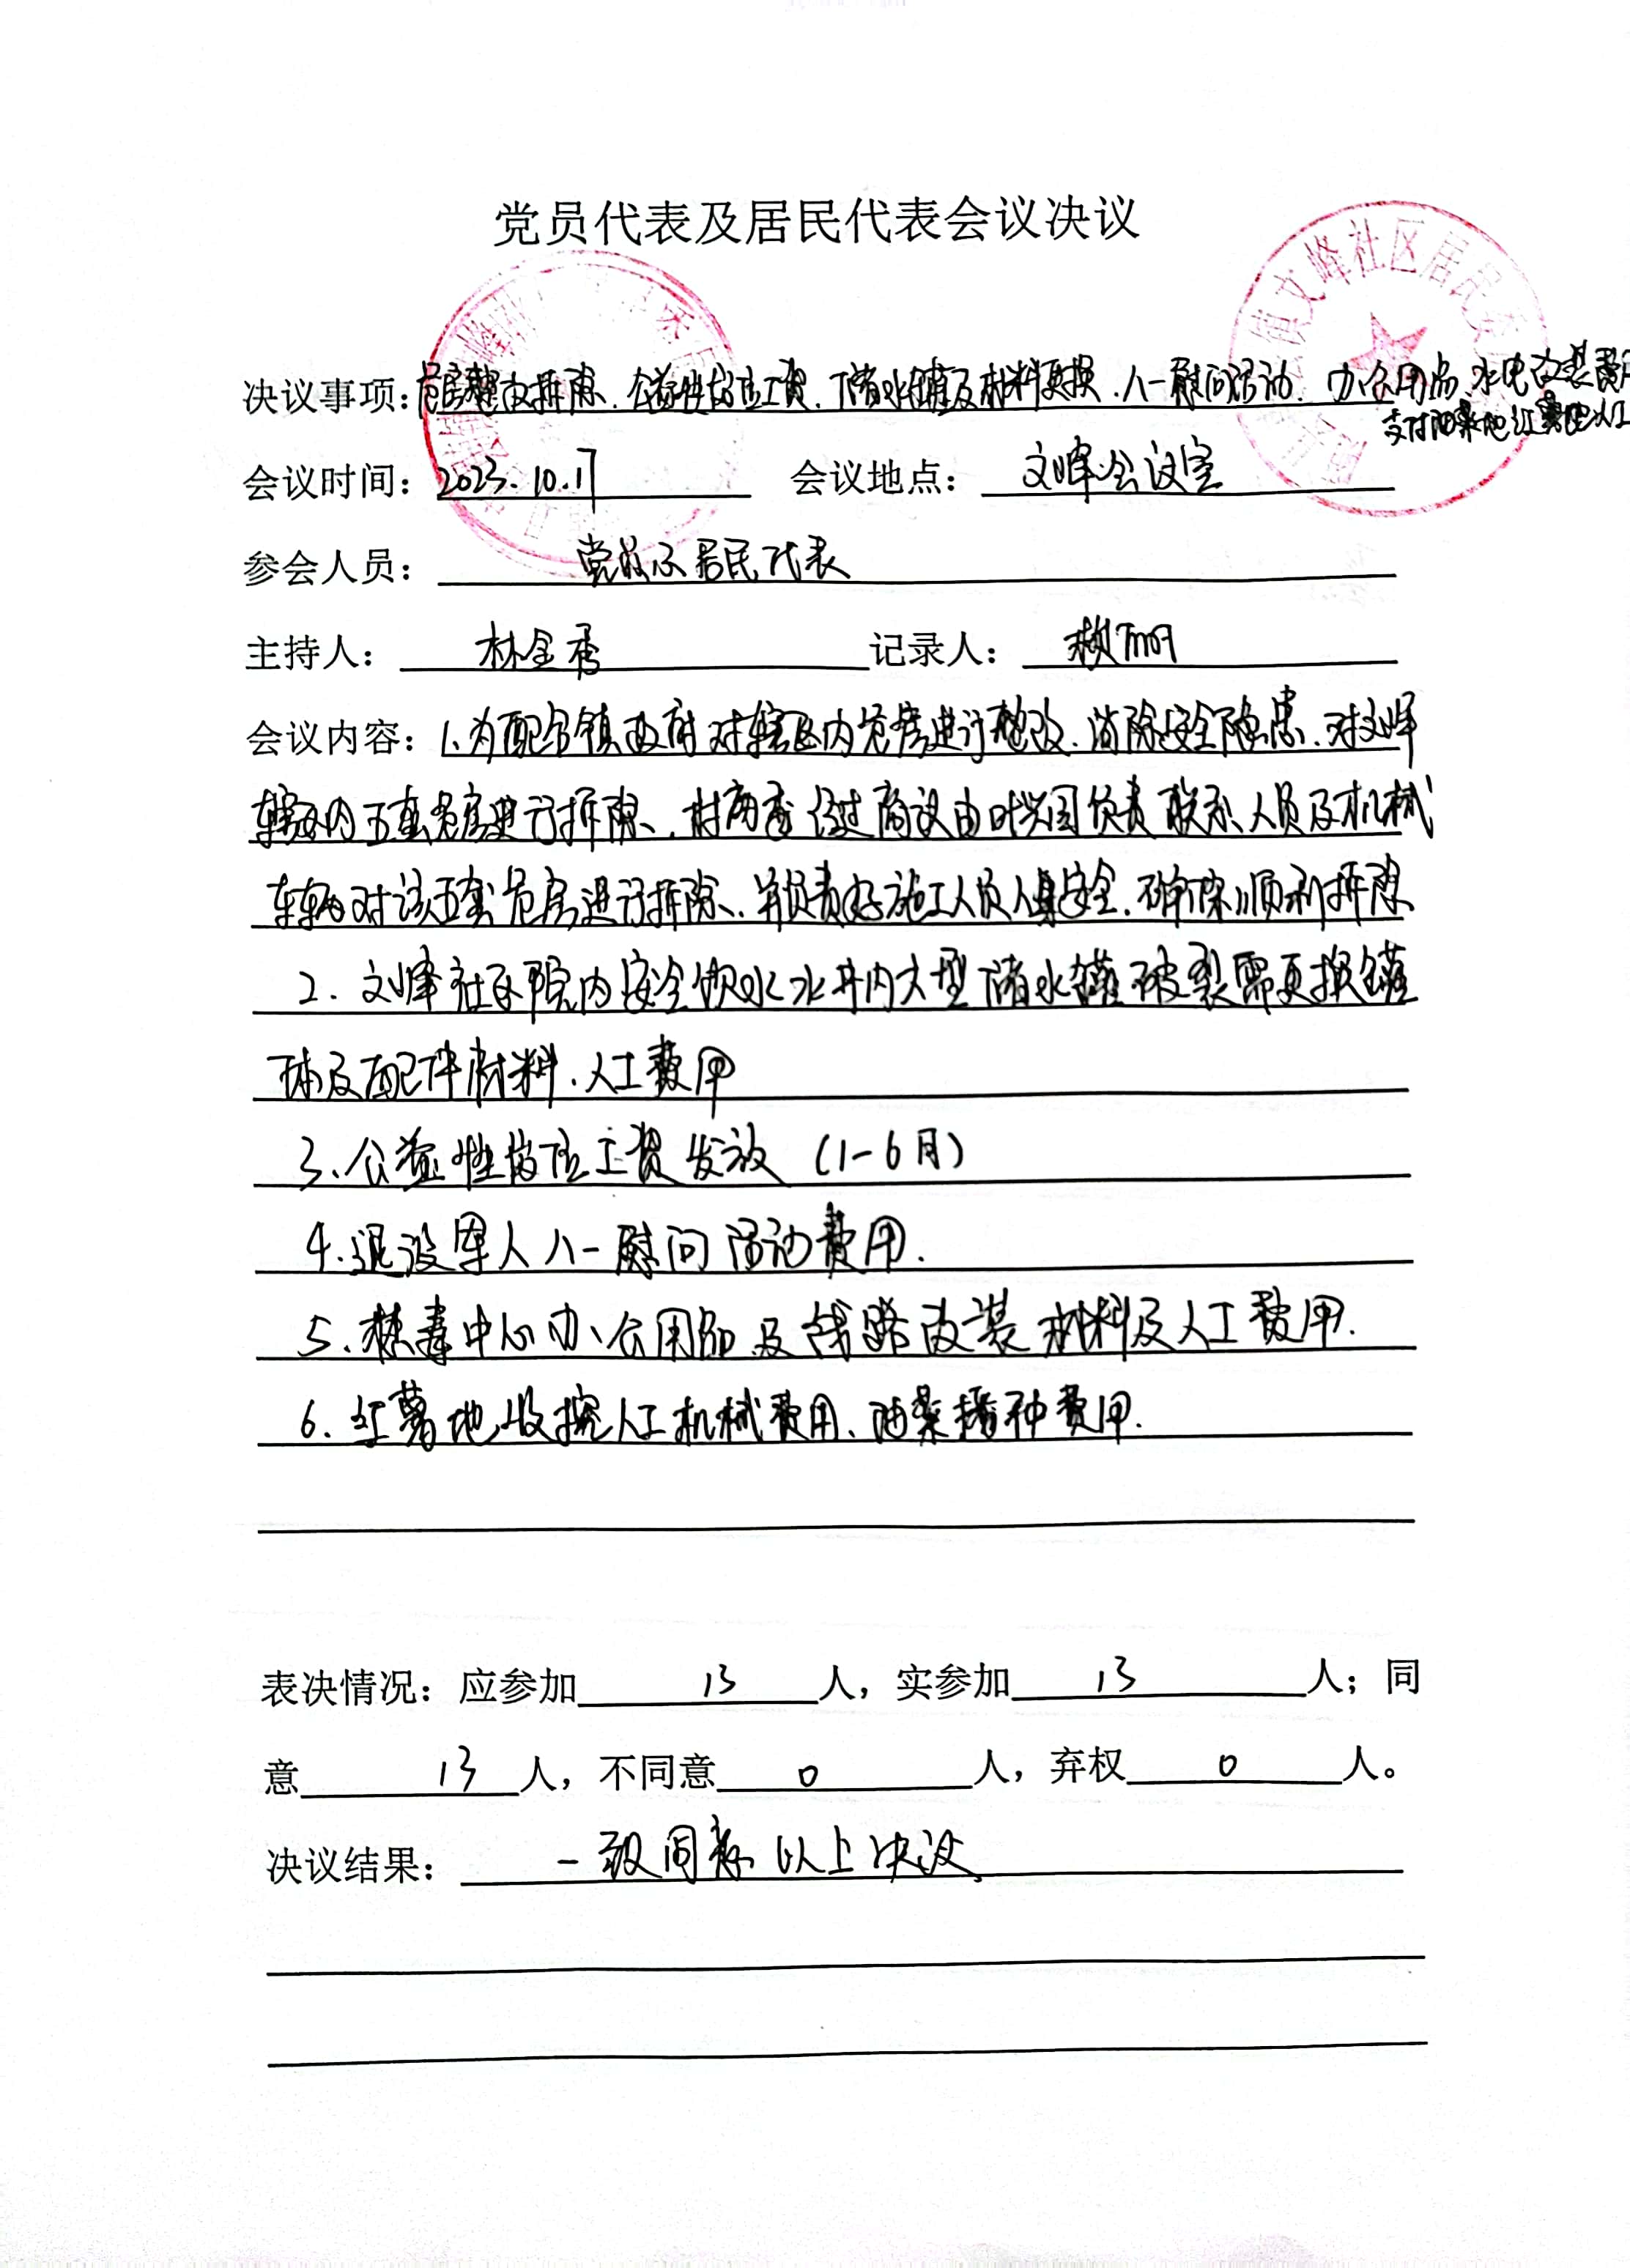 党员代表及居民代表会议决议
文峰社区居民委
决议事项：危房整改拆除、公益性岗位工资、储水罐及材料更换、八一慰问活动、办公用品、水电改装费用
支付油菜地红薯地人工
会议时间：2023.10.17 会议地点：文峰会议室
参会人员：党员及居民代表
主持人：林金秀 记录人：
会议内容：1、为配合镇政府对辖区内危房进行整改、消除安全隐患、对文峰
辖区内五套危房进行拆除、村两委经过商议由叶兴国负责联系人员及机械
车辆对该五套危房进行拆除、并负责好施工人员人身安全、确保顺利拆除
2. 文峰社区院内安全饮水水井内大型储水罐破裂需更换罐
体及配件材料、人工费用
3、公益性岗位工资发放（1-6月）
4、退役军人八一慰问活动费用.
5、禁毒中心办公用品及线路改装材料及人工费用.
6、红薯地收挖人工机械费用、油菜播种费用.
表决情况：应参加 13 人，实参加 13 人；同
意 13 人，不同意 0 人，弃权 0 人。
决议结果：一致同意以上决议